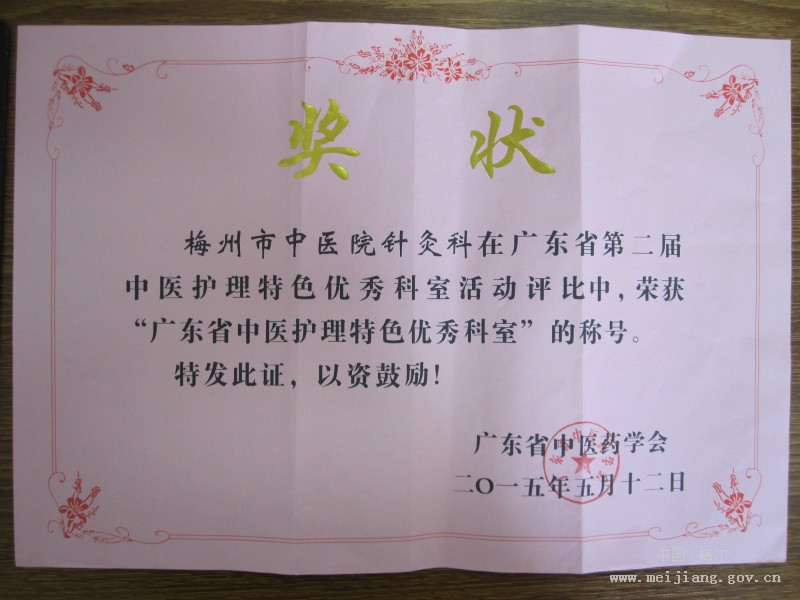 奖状
梅州市中医院针灸科在广东省第二届
中医护理特色优秀科室活动评比中,荣获
“广东省中医护理特色优秀科室”的称号。
特发此证,以资鼓励!
广东省中医药学会
二〇一五年五月十二日
www.meijiang.gov.cn